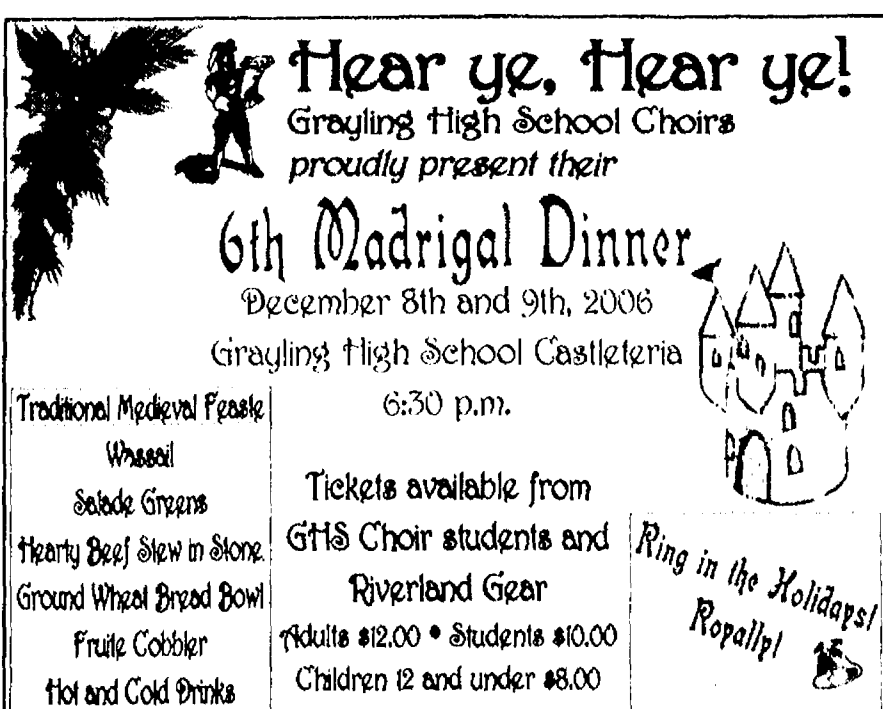 Hear ye, Hear ye!
Grayling High School Choirs
proudly present their
6th Madrigal Dinner
December 8th and 9th, 2006
Grayling High School Castleteria
6:30 p.m.
Traditional Medieval Feaste
Wassail
Salade Greens
Hearty Beef Stew in Stone
Ground Wheat Bread Bowl
Fruite Cobbler
Hot and Cold Drinks
Tickets available from
GHS Choir students and
Riverland Gear
Adults $12.00 • Students $10.00
Children 12 and under $8.00
Ring in the Holidays!
Royally!